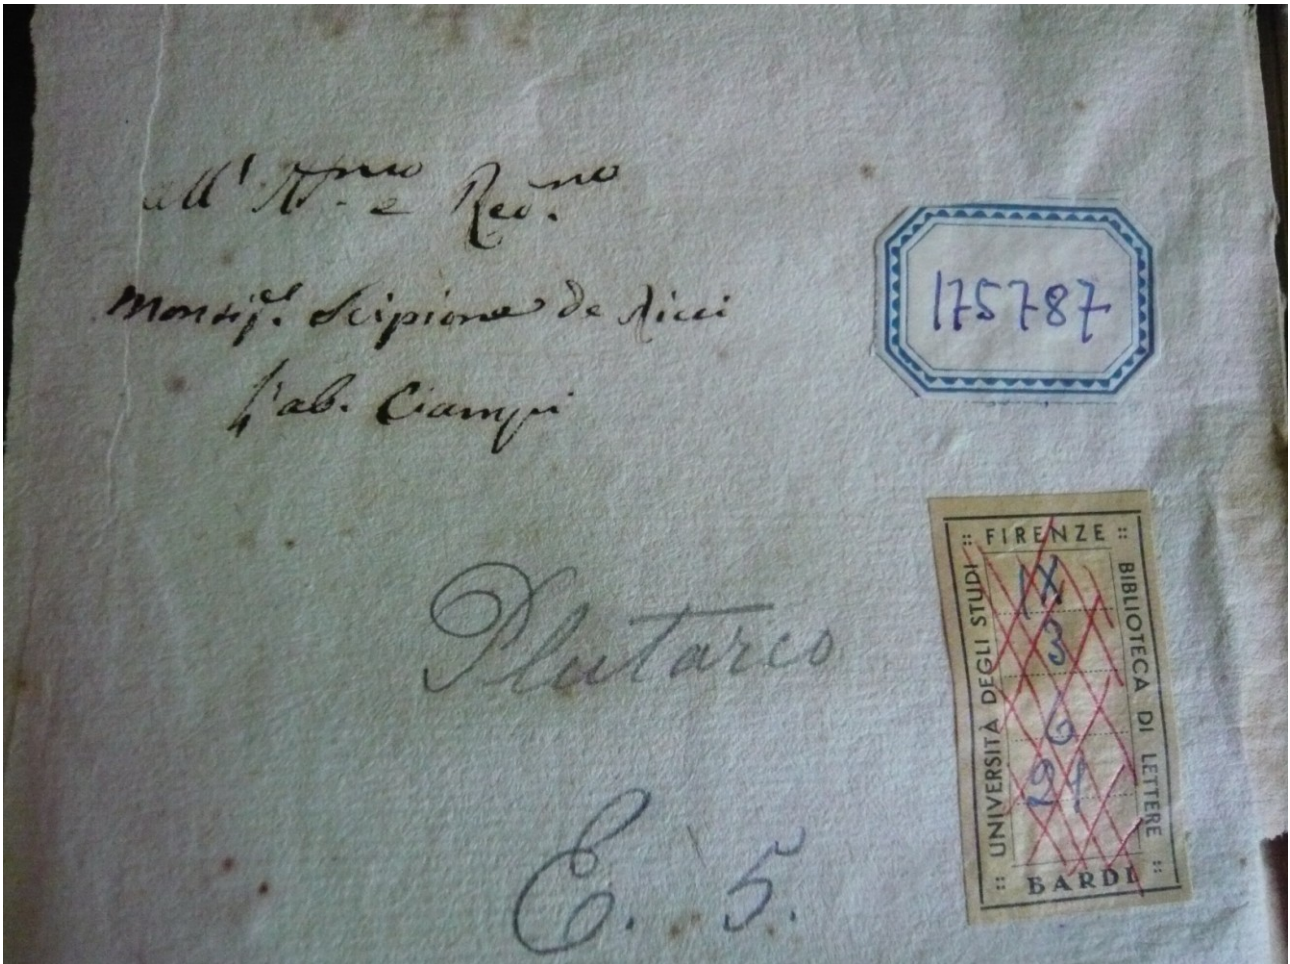 all' Ill.mo e Rev.mo
Monsig.r Scipione de Ricci
l'ab. Ciampi
175787
Plutarco
E. 5.
:: FIRENZE ::
UNIVERSITÀ DEGLI STUDI
BIBLIOTECA DI LETTERE
IX
3
6
21
BARDI